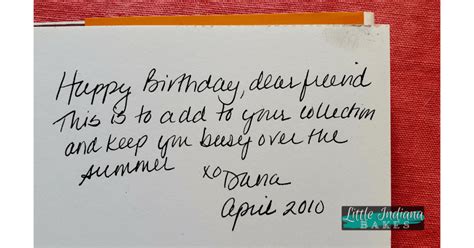 Happy Birthday, dear friend
This is to add to your collection
and keep you busy over the
summer
xo Dana
April 2010
Little Indiana
BAKES